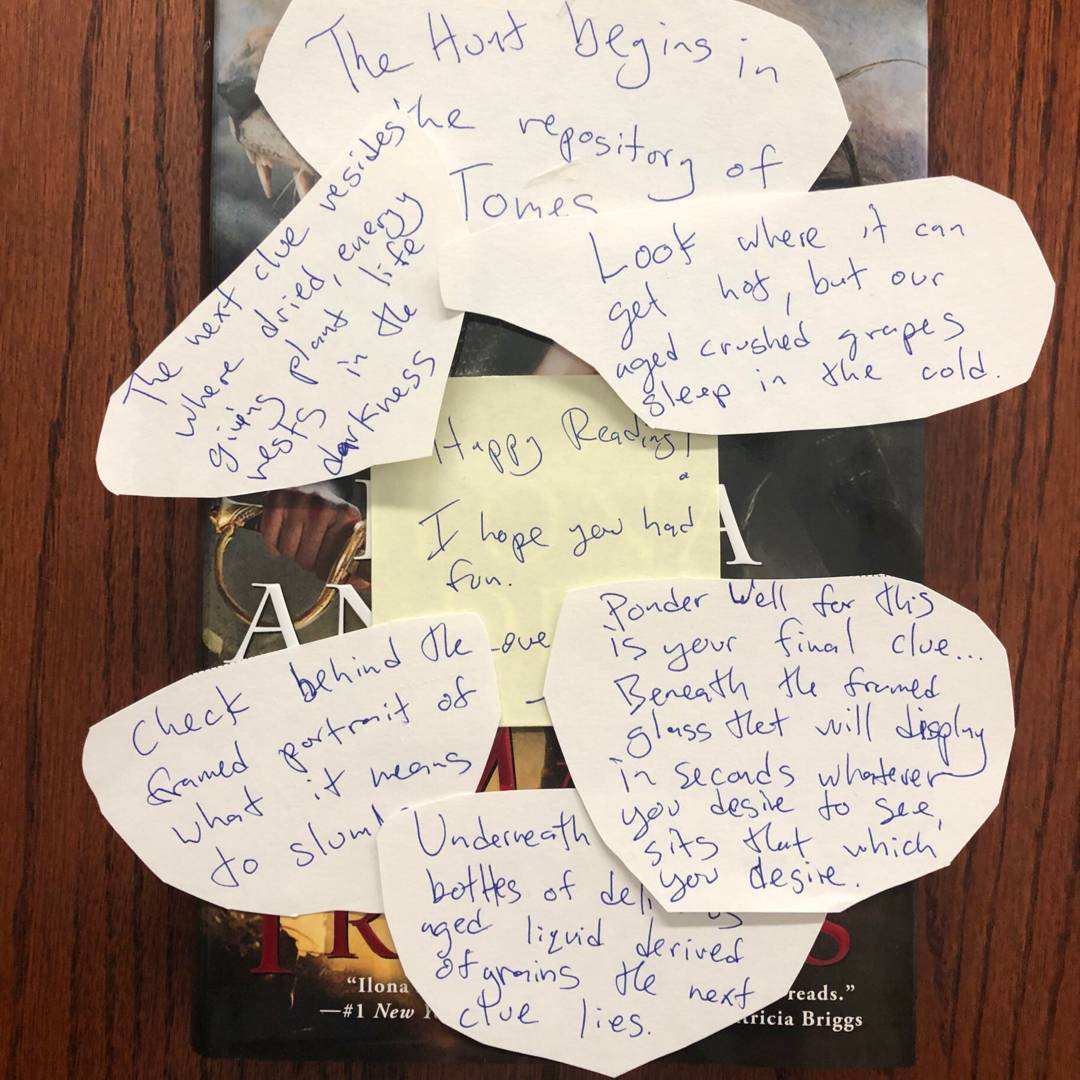 The Hunt begins in
the repository of
Tomes
The next clue resides
where dried, energy
giving plant life
rests in the
darkness
Look where it can
get hot, but our
aged crushed grapes
sleep in the cold.
Happy Reading!
I hope you had
fun.
Love
Check behind the
framed portrait of
what it means
to
Ponder Well for this
is your final clue...
Beneath the framed
glass that will display
in seconds whatever
you desire to see,
sits that which
you desire.
Underneath
bottles of
aged liquid derived
of grains the next
clue lies.
A
AN
S
“Ilona
reads.”
—#1 New
tricia Briggs